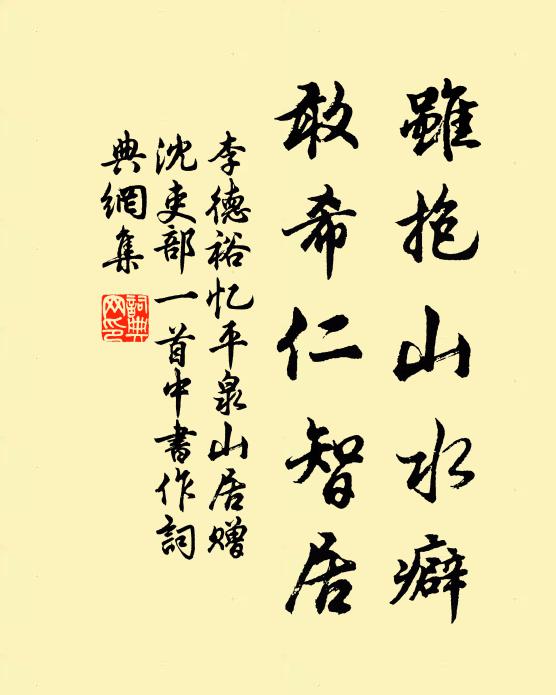 雖抱山水癖
敢希仁智居
李德裕忆平泉山居赠
沈吏部一首中書作詞
典網集
詞典网印